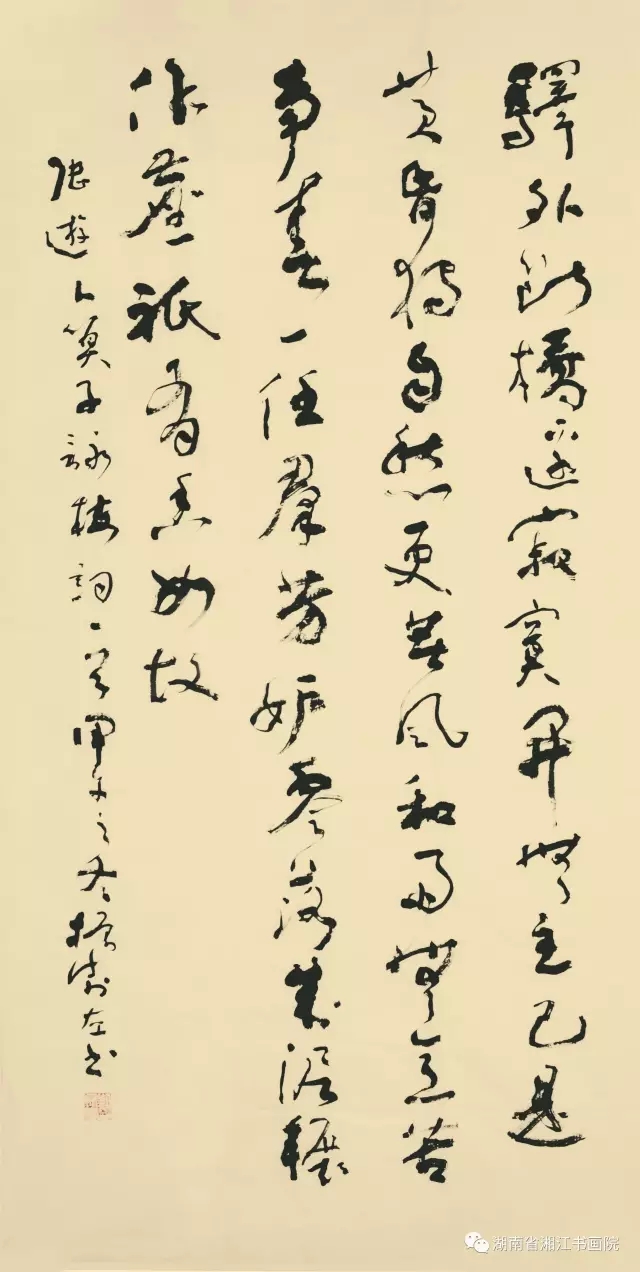 驛外斷橋邊寂寞開無主已是
黃昏獨自愁更著風和雨無意苦
爭春一任羣芳妒零落成泥輾
作塵祇有香如故
陸遊卜算子詠梅詞一首甲午之冬左书
湖南省湘江书画院